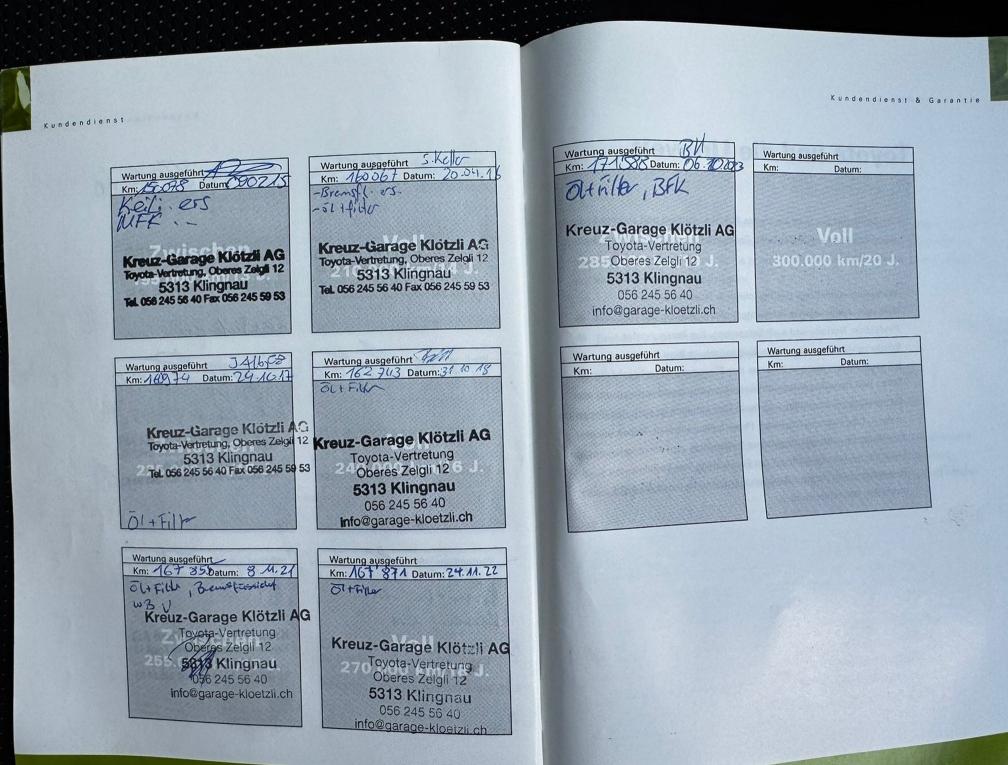 Kundendienst
Wartung ausgeführt
Km: Datum: 090215
Keil. ers
MFK
Zwischen
Kreuz-Garage Klötzli AG
Toyota-Vertretung, Oberes Zelgli 12
5313 Klingnau
Tel. 056 245 56 40 Fax 056 245 59 53
S. Keller
Wartung ausgeführt
Km: 160067 Datum: 20.04.16
- Bremsfl. ers.
- Öl + filter
Voll
Kreuz-Garage Klötzli AG
Toyota-Vertretung, Oberes Zelgli 12
5313 Klingnau
Tel. 056 245 56 40 Fax 056 245 59 53
Wartung ausgeführt
Km: Datum: 24.10.17
Kreuz-Garage Klötzli AG
Toyota-Vertretung, Oberes Zelgli 12
5313 Klingnau
Tel. 056 245 56 40 Fax 056 245 59 53
Öl + Filter
Wartung ausgeführt
Km: 162 743 Datum: 31 10 19
Öl + Filter
Kreuz-Garage Klötzli AG
Toyota-Vertretung
Oberes Zelgli 12
5313 Klingnau
056 245 56 40
info@garage-kloetzli.ch
Wartung ausgeführt
Km: 167 358 Datum: 8 11.21
Öl + Filter, Bremsflüssigkeit
Kreuz-Garage Klötzli AG
Zwischen
Toyota-Vertretung
Oberes Zelgli 12
255.0
5313 Klingnau
056 245 56 40
info@garage-kloetzli.ch
Wartung ausgeführt
Km: 167 871 Datum: 24.11.22
Öl + Filter
Kreuz-Garage Klötzli AG
Voll
Toyota-Vertretung
270. km/18 J.
Oberes Zelgli 12
5313 Klingnau
056 245 56 40
info@garage-kloetzli.ch
Kundendienst & Garantie
Wartung ausgeführt
Km: 171'588 Datum: 06.10.2023
Öl + Filter, BFK
Kreuz-Garage Klötzli AG
Toyota-Vertretung
285 J.
Oberes Zelgli 12
5313 Klingnau
056 245 56 40
info@garage-kloetzli.ch
Wartung ausgeführt
Km: Datum:
Voll
300.000 km/20 J.
Wartung ausgeführt
Km: Datum:
Wartung ausgeführt
Km: Datum: